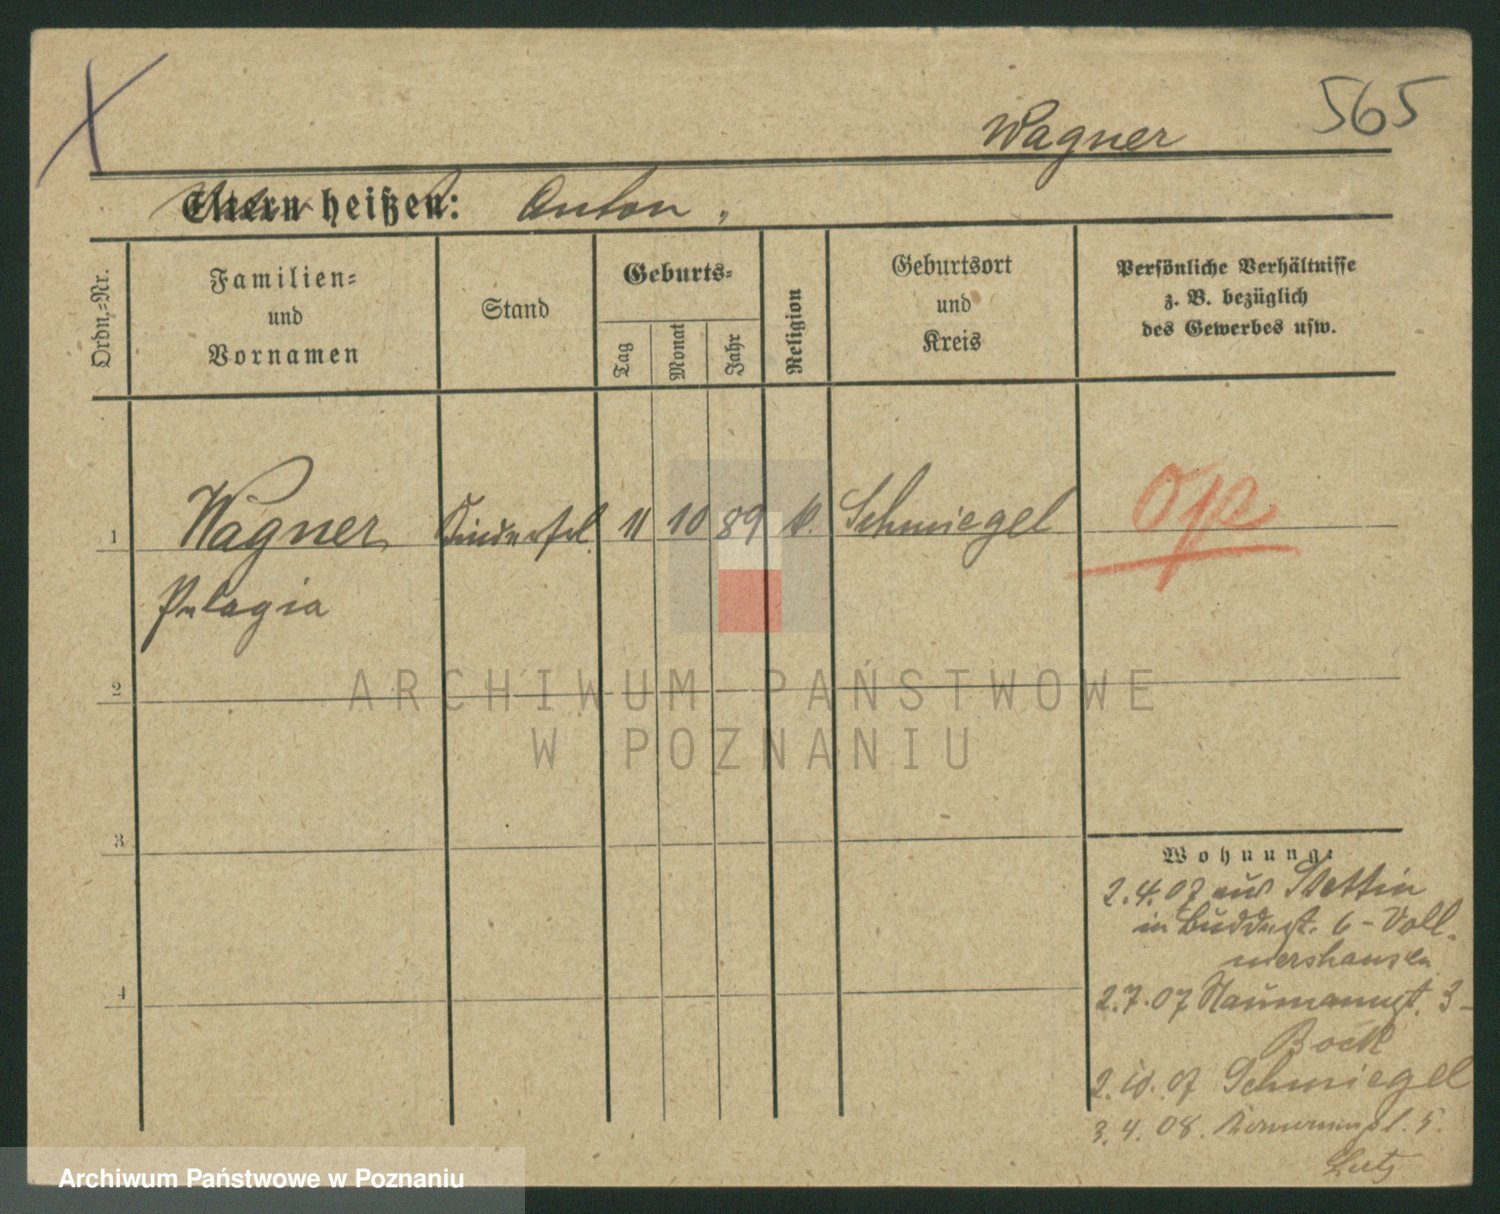 565
Wagner
Eltern heißen: Anton,
Ordn.-Nr.
Familien-
und
Vornamen
Stand
Geburts-
Tag
Monat
Jahr
Religion
Geburtsort
und
Kreis
Persönliche Verhältnisse
z. B. bezüglich
des Gewerbes usw.
1 Wagner Kinderfrl. 11 10 89 k. Schmiegel
Pelagia
2
3
4
Wohnung:
2.4.07 aus Stettin
in 6 - Voll-
mershausen
2.7.07 Naumannst. 3 -
Bock
2.10.07 Schmiegel
3.4.08. 5.
Lutz
ARCHIWUM PAŃSTWOWE
W POZNANIU
Archiwum Państwowe w Poznaniu